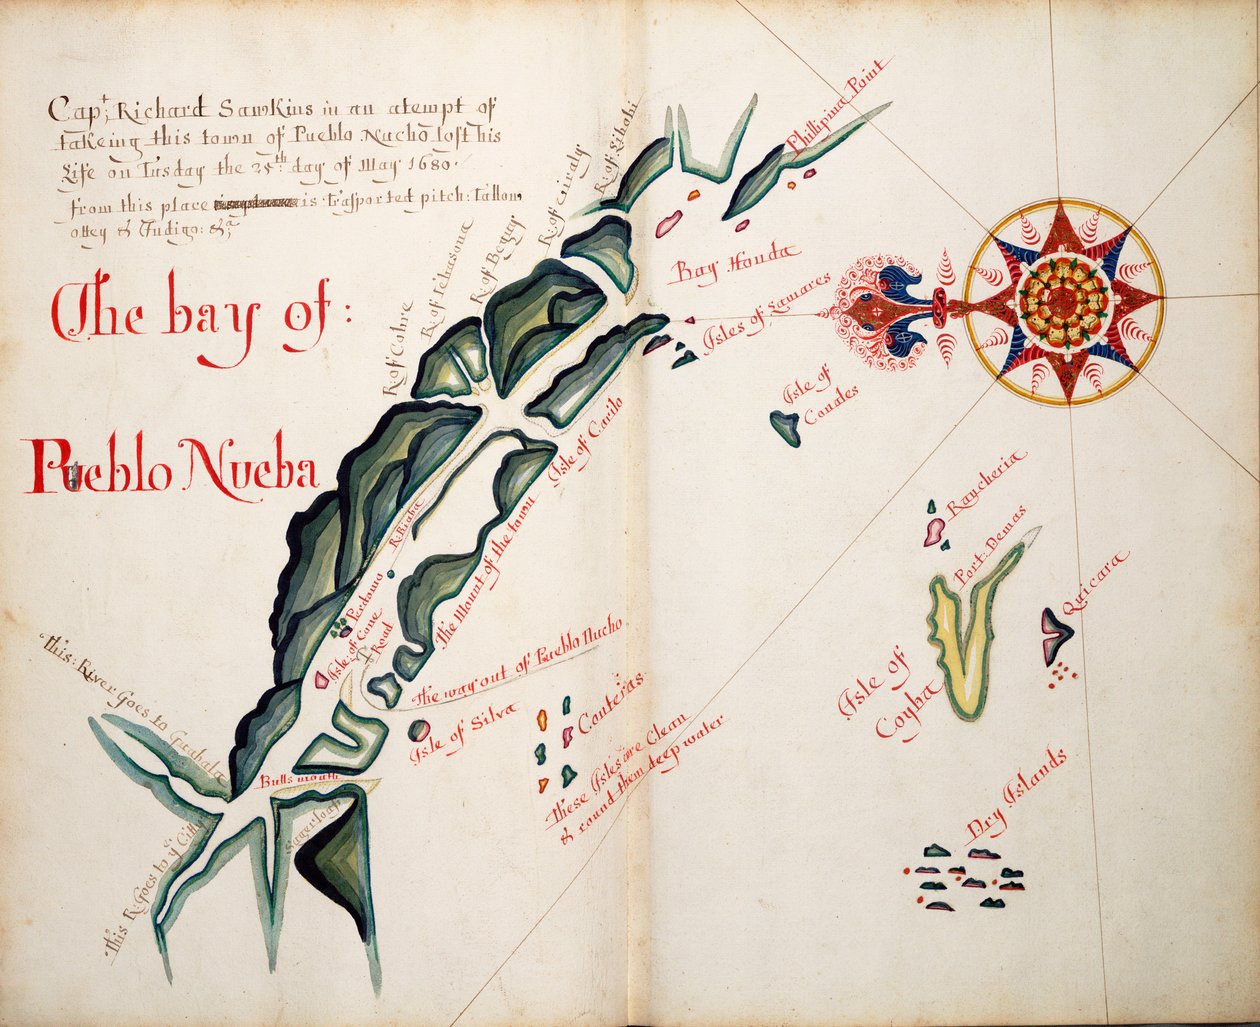 Capt: Richard Sawkins in an atempt of
takeing this town of Pueblo Nucho lost his
Life on Tusday the 25th day of May 1680
from this place is trasported pitch: Tallow,
ottey & Indigo: &a
The bay of:
Pueblo Nueba
R of Cobre
R. of Tebasona
R. of Beguy
R. of Libabi
Phillipina Point
Bay Honda
Isles of Lamares
Isle of
Conales
Isle of Carilo
The Mount of the town
R. Biaba
Perdomo
Isle of Cone
Road
The way out of Pueblo Nucho
Isle of Silva
Conteras
These Isles are Clean
& round them deep water
Raycheria
Port Demas
Quicara
Isle of
Coyba
Dry Islands
this: River Goes to Guahala
Bulls mouth
Sugerloaf
this R. Goes to ye Citty